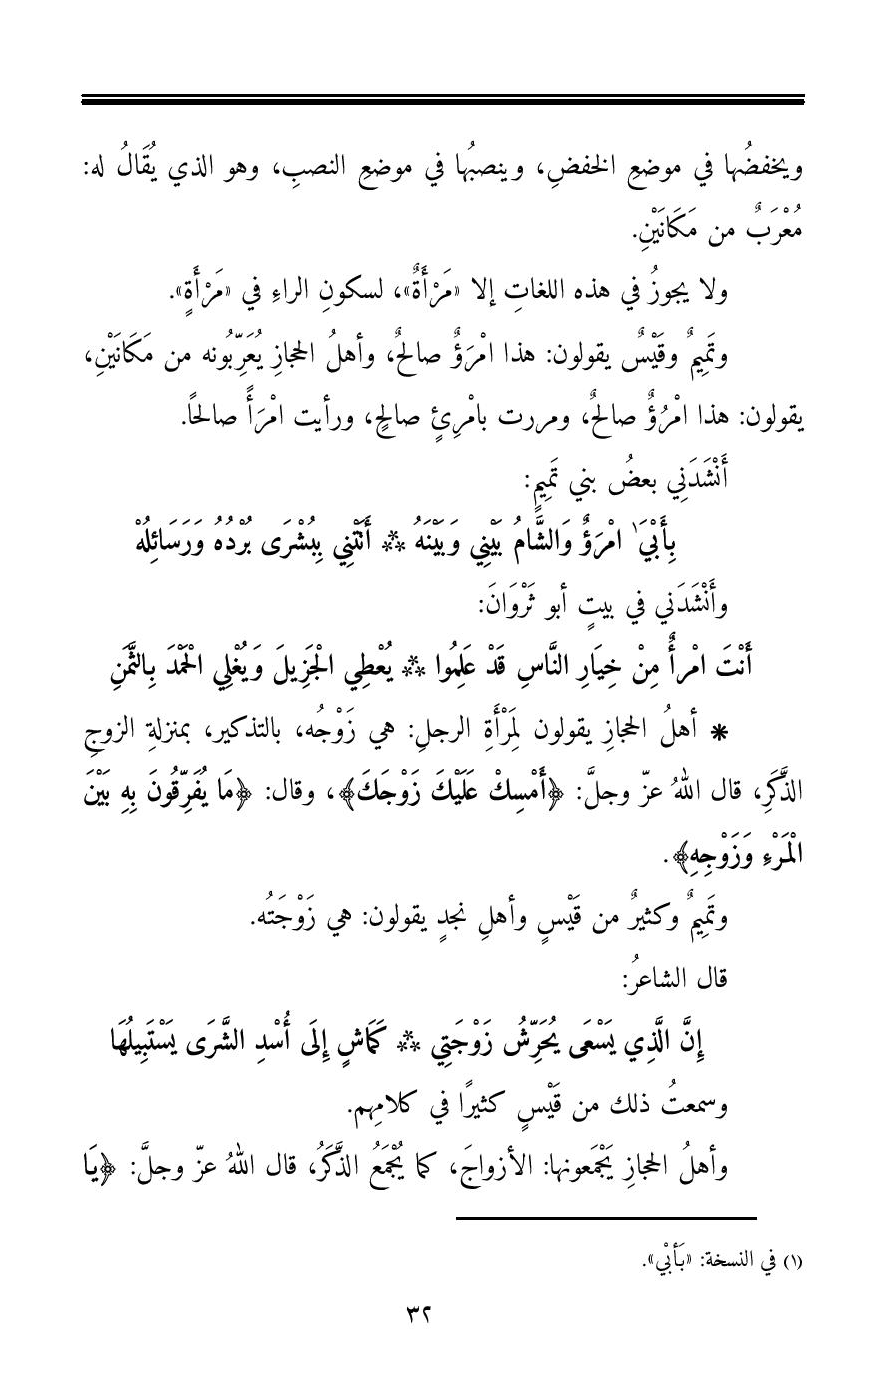 ويخفضُها في موضعِ الخفضِ، وينصبُها في موضعِ النصبِ، وهو الذي يُقَالُ له:
مُعْرَبٌ من مَكَانَيْنِ.
ولا يجوزُ في هذه اللغاتِ إلا «مَرْأَةٌ»، لسكونِ الراءِ في «مَرْأَةٍ».
وتَمِيمٌ وقَيْسٌ يقولون: هذا امْرَؤٌ صالحٌ، وأهلُ الحجازِ يُعَرِّبُونه من مَكَانَيْنِ،
يقولون: هذا امْرُؤٌ صالحٌ، ومررت بامْرِئٍ صالحٍ، ورأيت امْرَأً صالحًا.
أَنْشَدَنِي بعضُ بني تَمِيمٍ:
بِأَبْيَ ١ امْرَؤٌ وَالشَّامُ بَيْنِي وَبَيْنَهُ ⁂ أَتَتْنِي بِبُشْرَى بُرْدُهُ وَرَسَائِلُهْ
وأَنْشَدَني في بيتٍ أبو ثَرْوَانَ:
أَنْتَ امْرأٌ مِنْ خِيَارِ النَّاسِ قَدْ عَلِمُوا ⁂ يُعْطِي الْجَزِيلَ وَيُغْلِي الْحَمْدَ بِالثَّمَنِ
* أهلُ الحجازِ يقولون لِمَرْأَةِ الرجلِ: هي زَوْجُه، بالتذكير، بمنزلةِ الزوجِ
الذَّكَرِ، قال اللهُ عزّ وجلَّ: ﴿أَمْسِكْ عَلَيْكَ زَوْجَكَ﴾، وقال: ﴿مَا يُفَرِّقُونَ بِهِ بَيْنَ
الْمَرْءِ وَزَوْجِهِ﴾.
وتَمِيمٌ وكثيرٌ من قَيْسٍ وأهلِ نجدٍ يقولون: هي زَوْجَتُه.
قال الشاعرُ:
إِنَّ الَّذِي يَسْعَى يُحَرِّشُ زَوْجَتِي ⁂ كَمَاشٍ إِلَى أُسْدِ الشَّرَى يَسْتَبِيلُهَا
وسمعتُ ذلك من قَيْسٍ كثيرًا في كلامِهم.
وأهلُ الحجازِ يَجْمَعونها: الأزواجَ، كما يُجْمَعُ الذَّكَرُ، قال اللهُ عزّ وجلَّ: ﴿يَا
(١) في النسخة: «بَأبْي».
٣٢